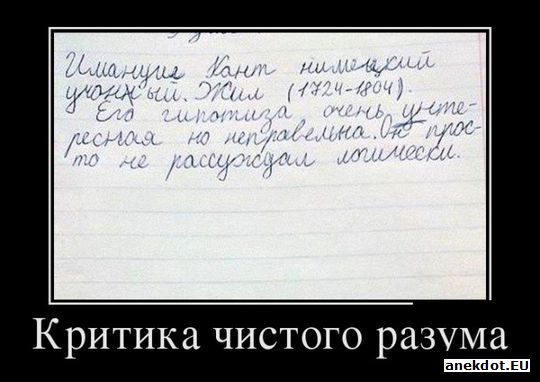 Имануил Кант нимецкий
учонный. Жил (1724-1804).
Его гипотиза очень инте-
ресная но неправельна. Он прос-
то не рассуждал логически.
Критика чистого разума
anekdot.EU